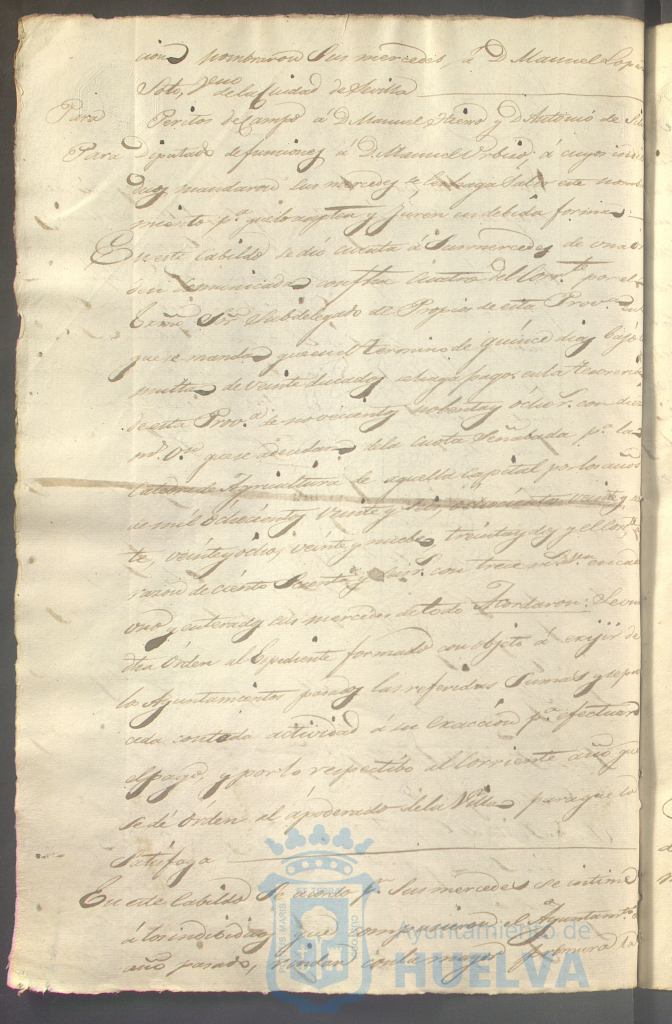 cion nombraron sus mercedes, á D Manuel Lopez
Soto, Vno de la Ciudad de Sevilla
Para Peritos de campo á D. Manuel Fierro y D Antonio de
Para Diputado de funciones á D. Manuel Urbino, á cuyos indi
duos mandaron sus mercedes se les haga saber este nom
miento pª que lo acepten y juren en debida forma
En este Cabildo se dió cuenta á sus mercedes de una ór
den comunicada con fha cuatro del Corrte por el
Exmo Sor Subdelegado de Propios de esta Provª en
que se manda que en el termino de quince dias bajo
multa de veinte ducados se haga pago en la tesoreria
de esta Provª de novecientos noventa y ocho r. con diez
mrs Vn que se adeudan de la cuota señalada pª la
Catedra de Agricultura de aquella Capital por los años
de mil ochocientos veinte y seis, ochocientos veinte y
te, veinte y ocho, veinte y nueve, treinta y el Corrte
razon de ciento sesenta y seis r. con trece mrs Vn en cada
uno y enterados sus mercedes de todo Acordaron: Se una
dha órden al Expediente formado con objeto á exijir de
los Ayuntamientos pasados las referidas sumas y se pro
ceda con toda actividad á su exaccion pª efectuar
el pago, y por lo respectibo al corriente año que
se dé órden al apoderado de la Villa para que lo
satisfaga
En este Cabildo se acordó pr sus mercedes se intime
á los individuos que componian el Ayuntamto
año pasado, rindan con la mayor premura la
Ayuntamiento de
HUELVA